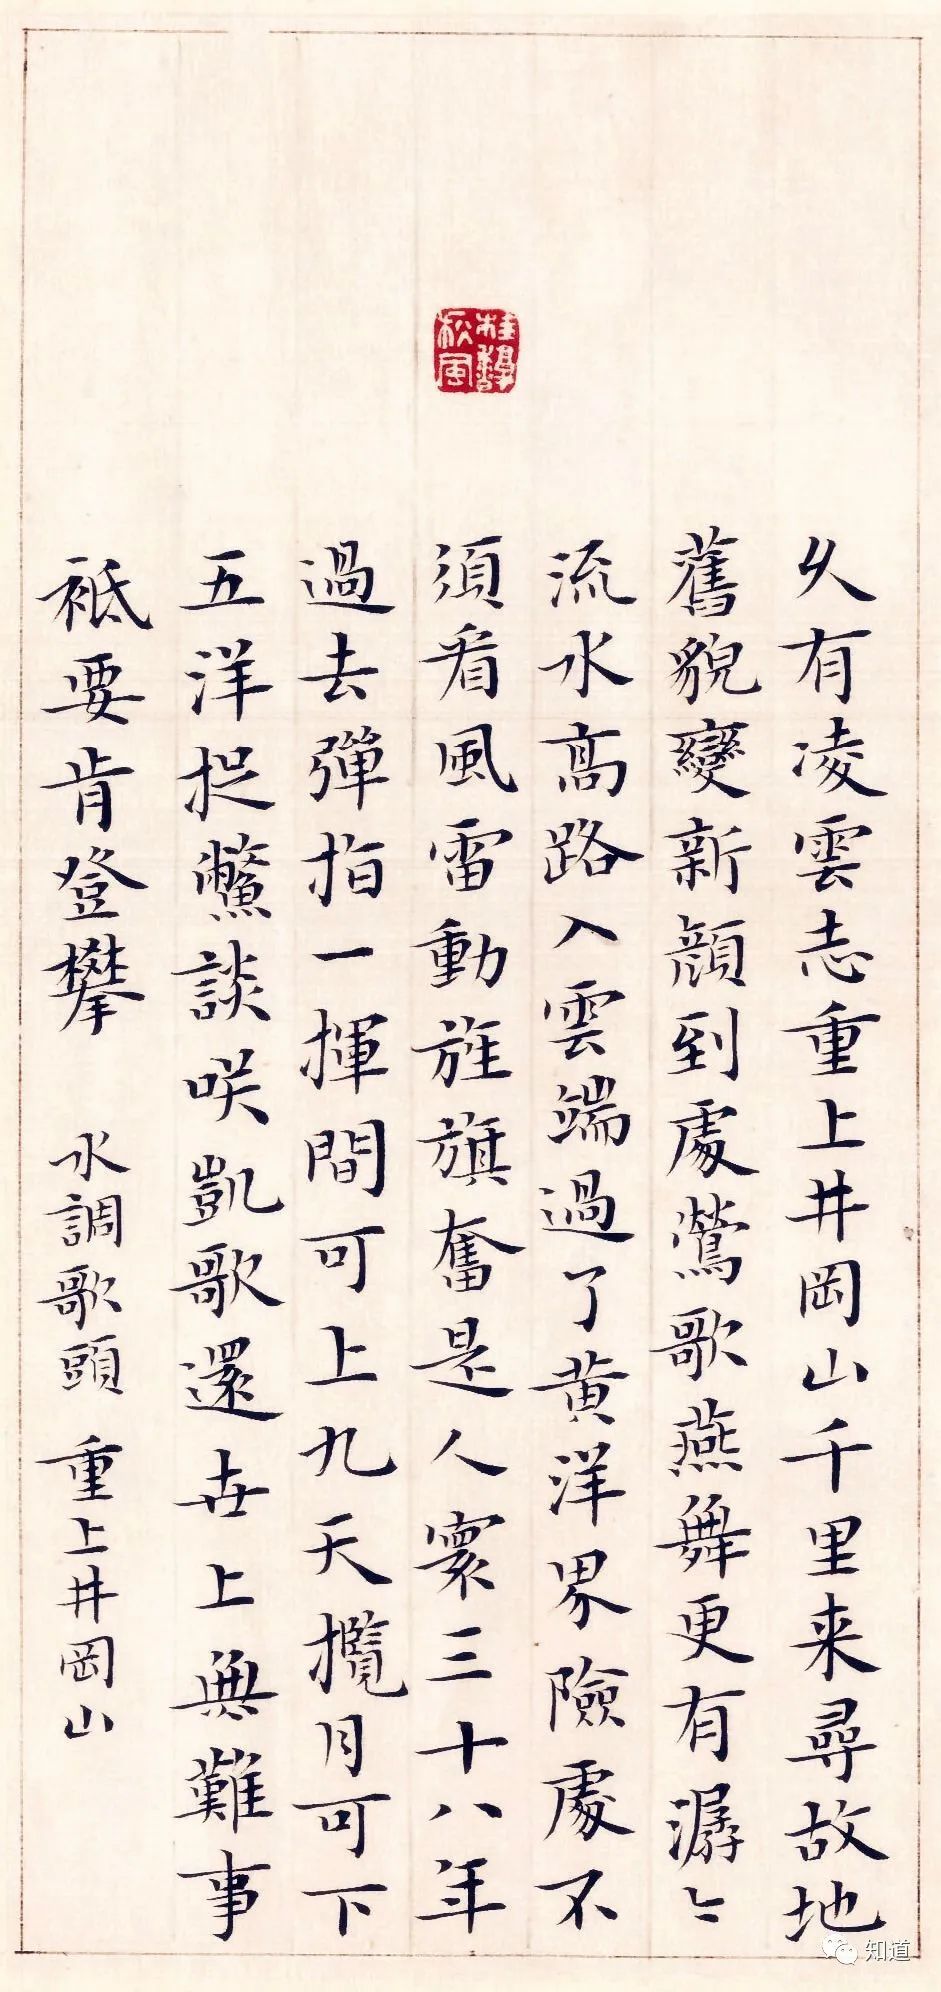 桂
松風
久有凌雲志重上井岡山千里来尋故地
舊貌變新顔到處鶯歌燕舞更有潺々
流水高路入雲端過了黄洋界險處不
須看風雷動旌旗奮是人寰三十八年
過去彈指一揮間可上九天攬月可下
五洋捉鱉談咲凱歌還世上無難事
袛要肯登攀 水調歌頭 重上井岡山
知道